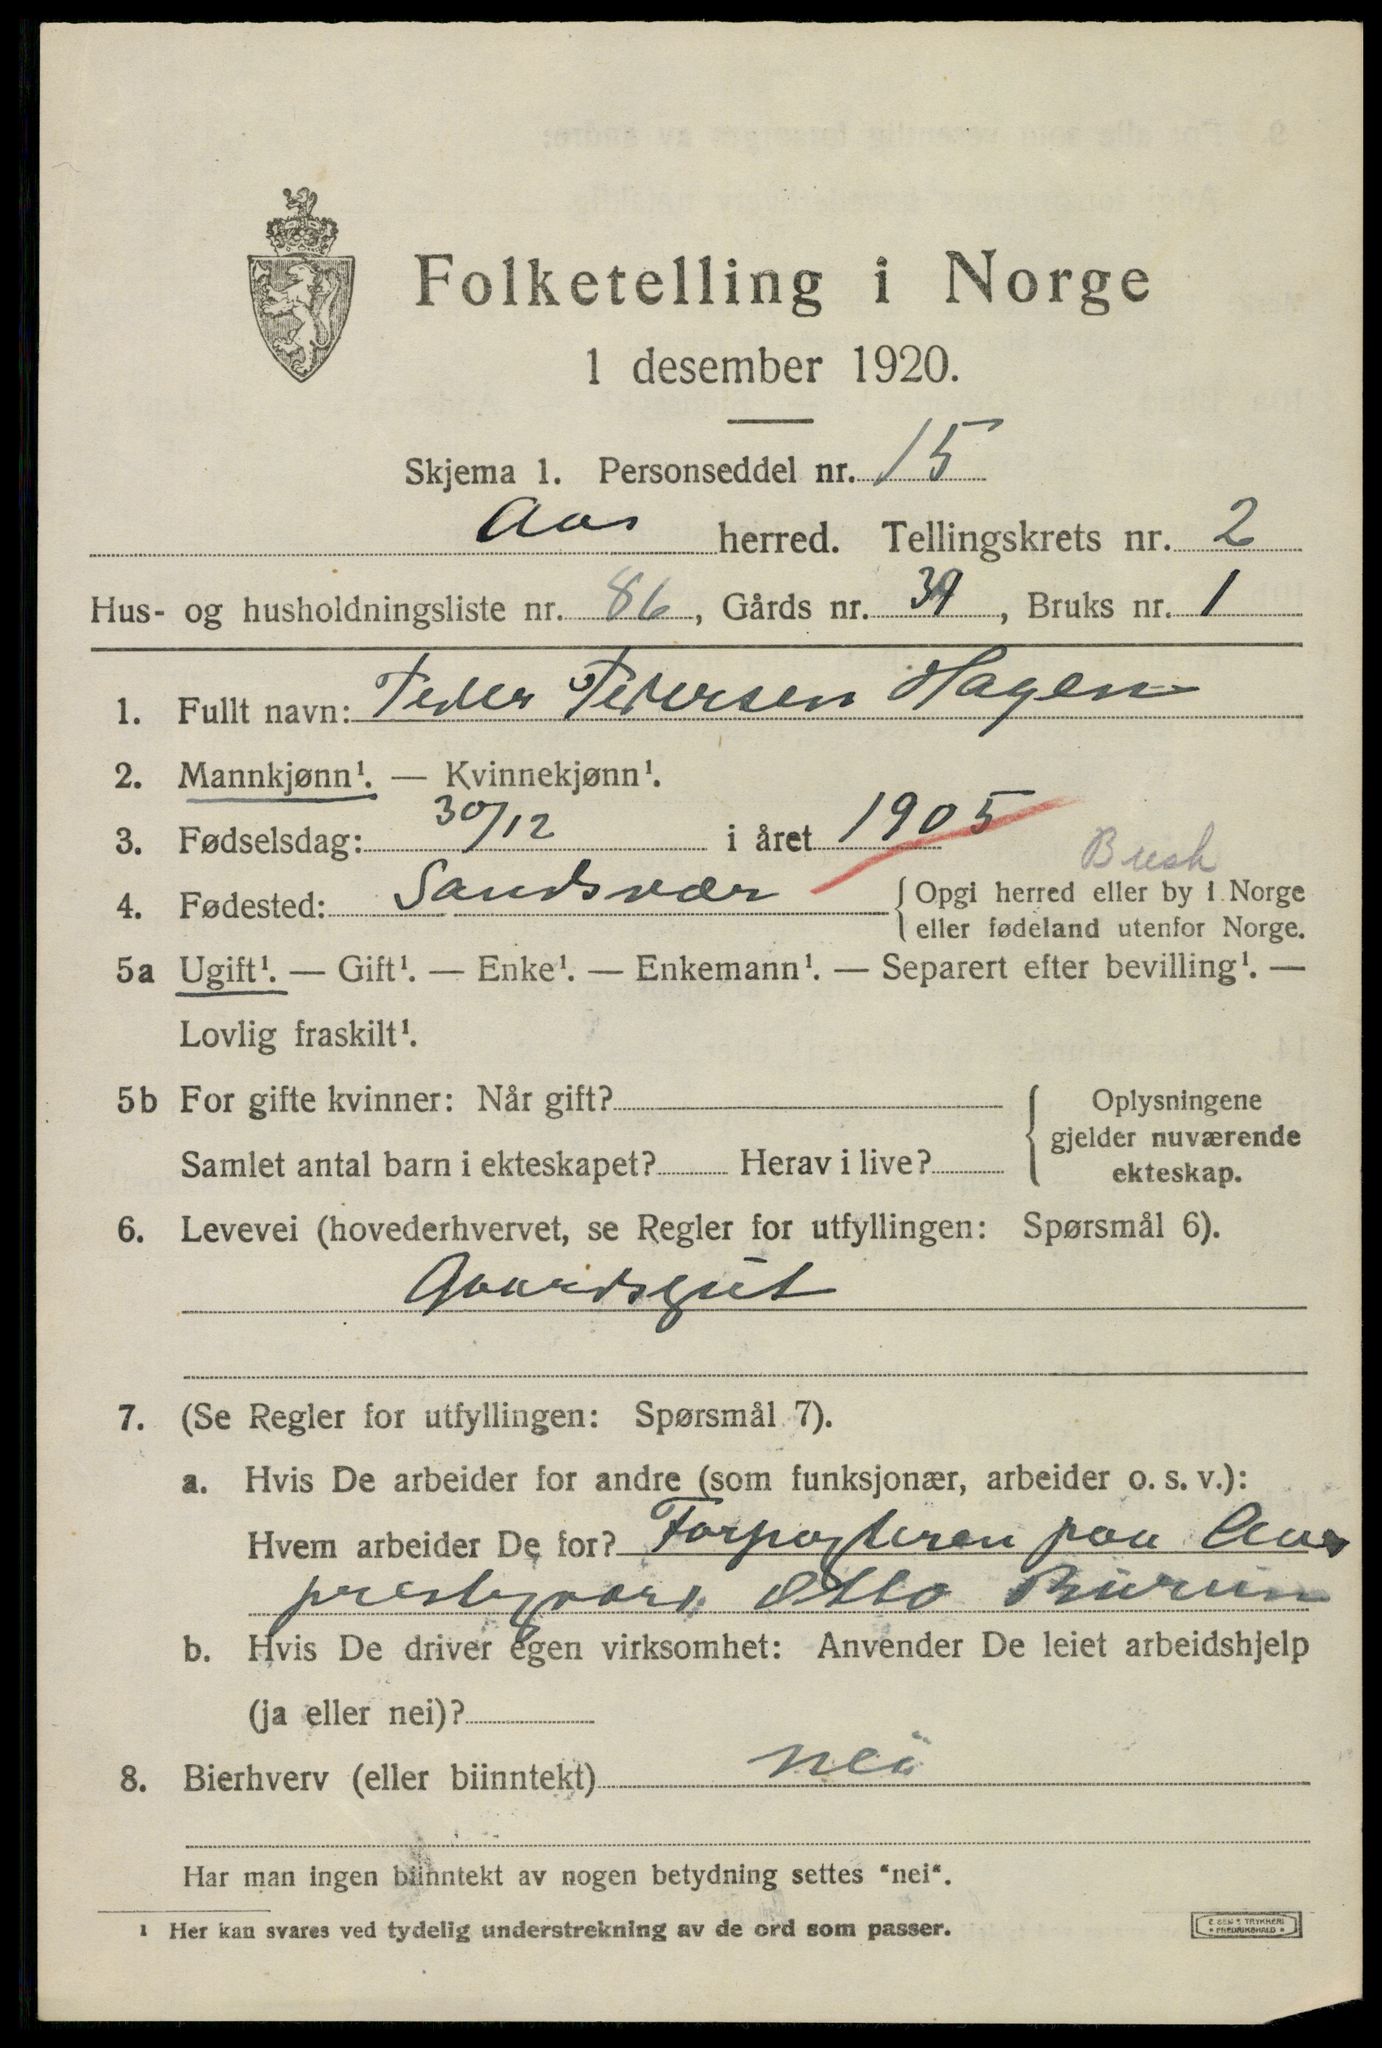 Folketelling i Norge
1 desember 1920.
Skjema 1. Personseddel nr. 15
Aas herred. Tellingskrets nr. 2
Hus- og husholdningsliste nr. 86, Gårds nr. 39, Bruks nr. 1
1. Fullt navn: Peder Pedersen Hagen
2. Mannkjønn¹. — Kvinnekjønn¹.
3. Fødselsdag: 30/12 i året 1905
Busk
4. Fødested: Sandsvær { Opgi herred eller by i Norge
eller fødeland utenfor Norge.
5a Ugift¹. — Gift¹. — Enke¹. — Enkemann¹. — Separert efter bevilling¹. —
Lovlig fraskilt¹.
5b For gifte kvinner: Når gift? { Oplysningene
gjelder nuværende
Samlet antal barn i ekteskapet? Herav i live?
ekteskap.
6. Levevei (hovederhvervet, se Regler for utfyllingen: Spørsmål 6).
Gaardsgut
7. (Se Regler for utfyllingen: Spørsmål 7).
a. Hvis De arbeider for andre (som funksjonær, arbeider o. s. v.):
Hvem arbeider De for? Forpagteren paa Aas
prestegaard Otto
b. Hvis De driver egen virksomhet: Anvender De leiet arbeidshjelp
(ja eller nei)?
8. Bierhverv (eller biinntekt) nei
Har man ingen biinntekt av nogen betydning settes "nei".
¹ Her kan svares ved tydelig understrekning av de ord som passer.
E. SEM'S TRYKKERI
FREDRIKSHALD